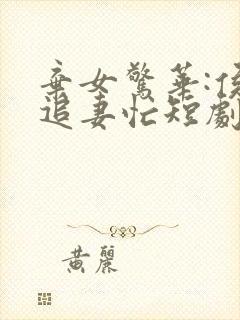 棄女驚華:侯
追妻忙短劇
黃麗